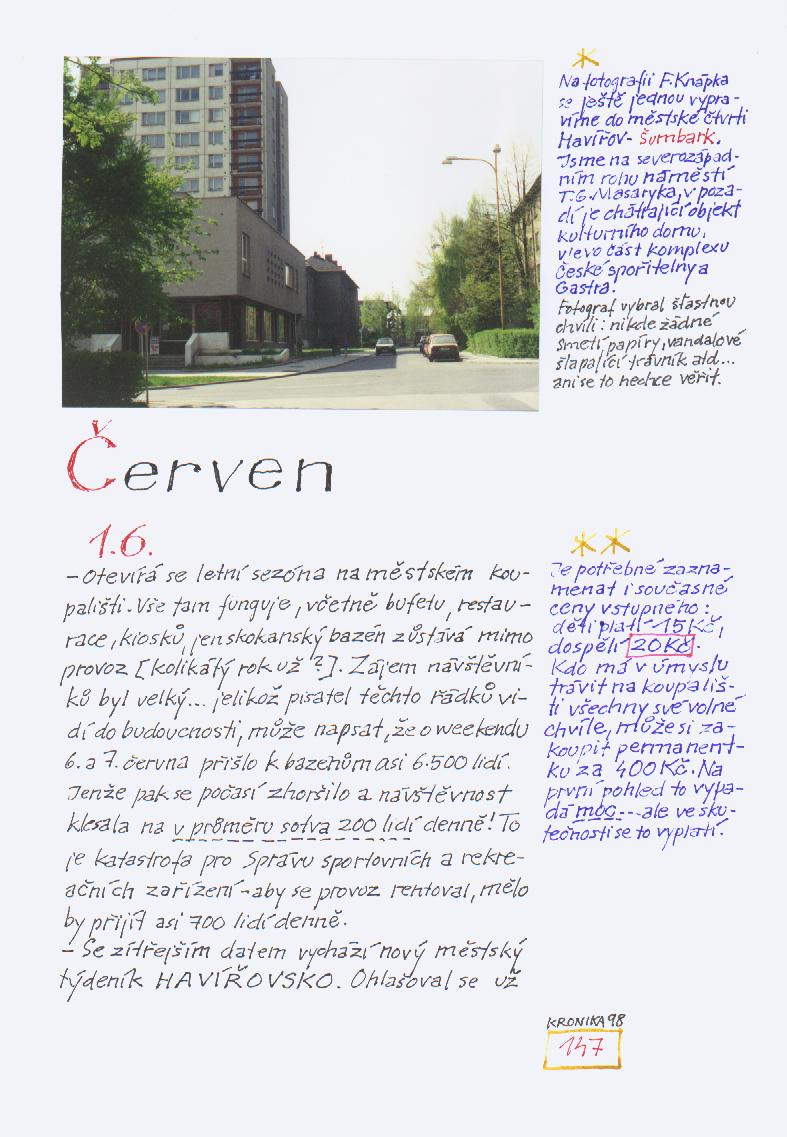 *
Na fotografii F. Knápka
se ještě jednou vypra-
víme do městské čtvrti
Havířov - Šumbark.
Jsme na severozápad-
ním rohu náměstí
T.G. Masaryka, v poza-
dí je chátrající objekt
kulturního domu,
vlevo část komplexu
České spořitelny a
Gastra.
Fotograf vybral šťastnou
chvíli: nikde žádné
smetí, papíry, vandalové
šlapající trávník atd...
ani se to nechce věřit.
Červen
1.6.
- Otevírá se letní sezóna na městském kou-
pališti. Vše tam funguje, včetně bufetu, restau-
race, kiosků, jen skokanský bazén zůstává mimo
provoz [kolikátý rok už?]. Zájem návštěvní-
ků byl velký... jelikož pisatel těchto řádků vi-
dí do budoucnosti, může napsat, že o weekendu
6. a 7. června přišlo k bazénům asi 6.500 lidí.
Jenže pak se počasí zhoršilo a návštěvnost
klesala na v průměru sotva 200 lidí denně! To
je katastrofa pro Správu sportovních a rekre-
ačních zařízení - aby se provoz rentoval, mělo
by přijít asi 700 lidí denně.
- Se zítřejším datem vychází nový městský
týdeník HAVÍŘOVSKO. Ohlašoval se už
**
Je potřebné zazna-
menat i současné
ceny vstupného:
děti platí 15 Kč,
dospělí 20 Kč.
Kdo má v úmyslu
trávit na koupališ-
ti všechny své volné
chvíle, může si za-
koupit permanent-
ku za 400 Kč. Na
první pohled to vypa-
dá moc... ale ve sku-
tečnosti se to vyplatí.
KRONIKA 98
147